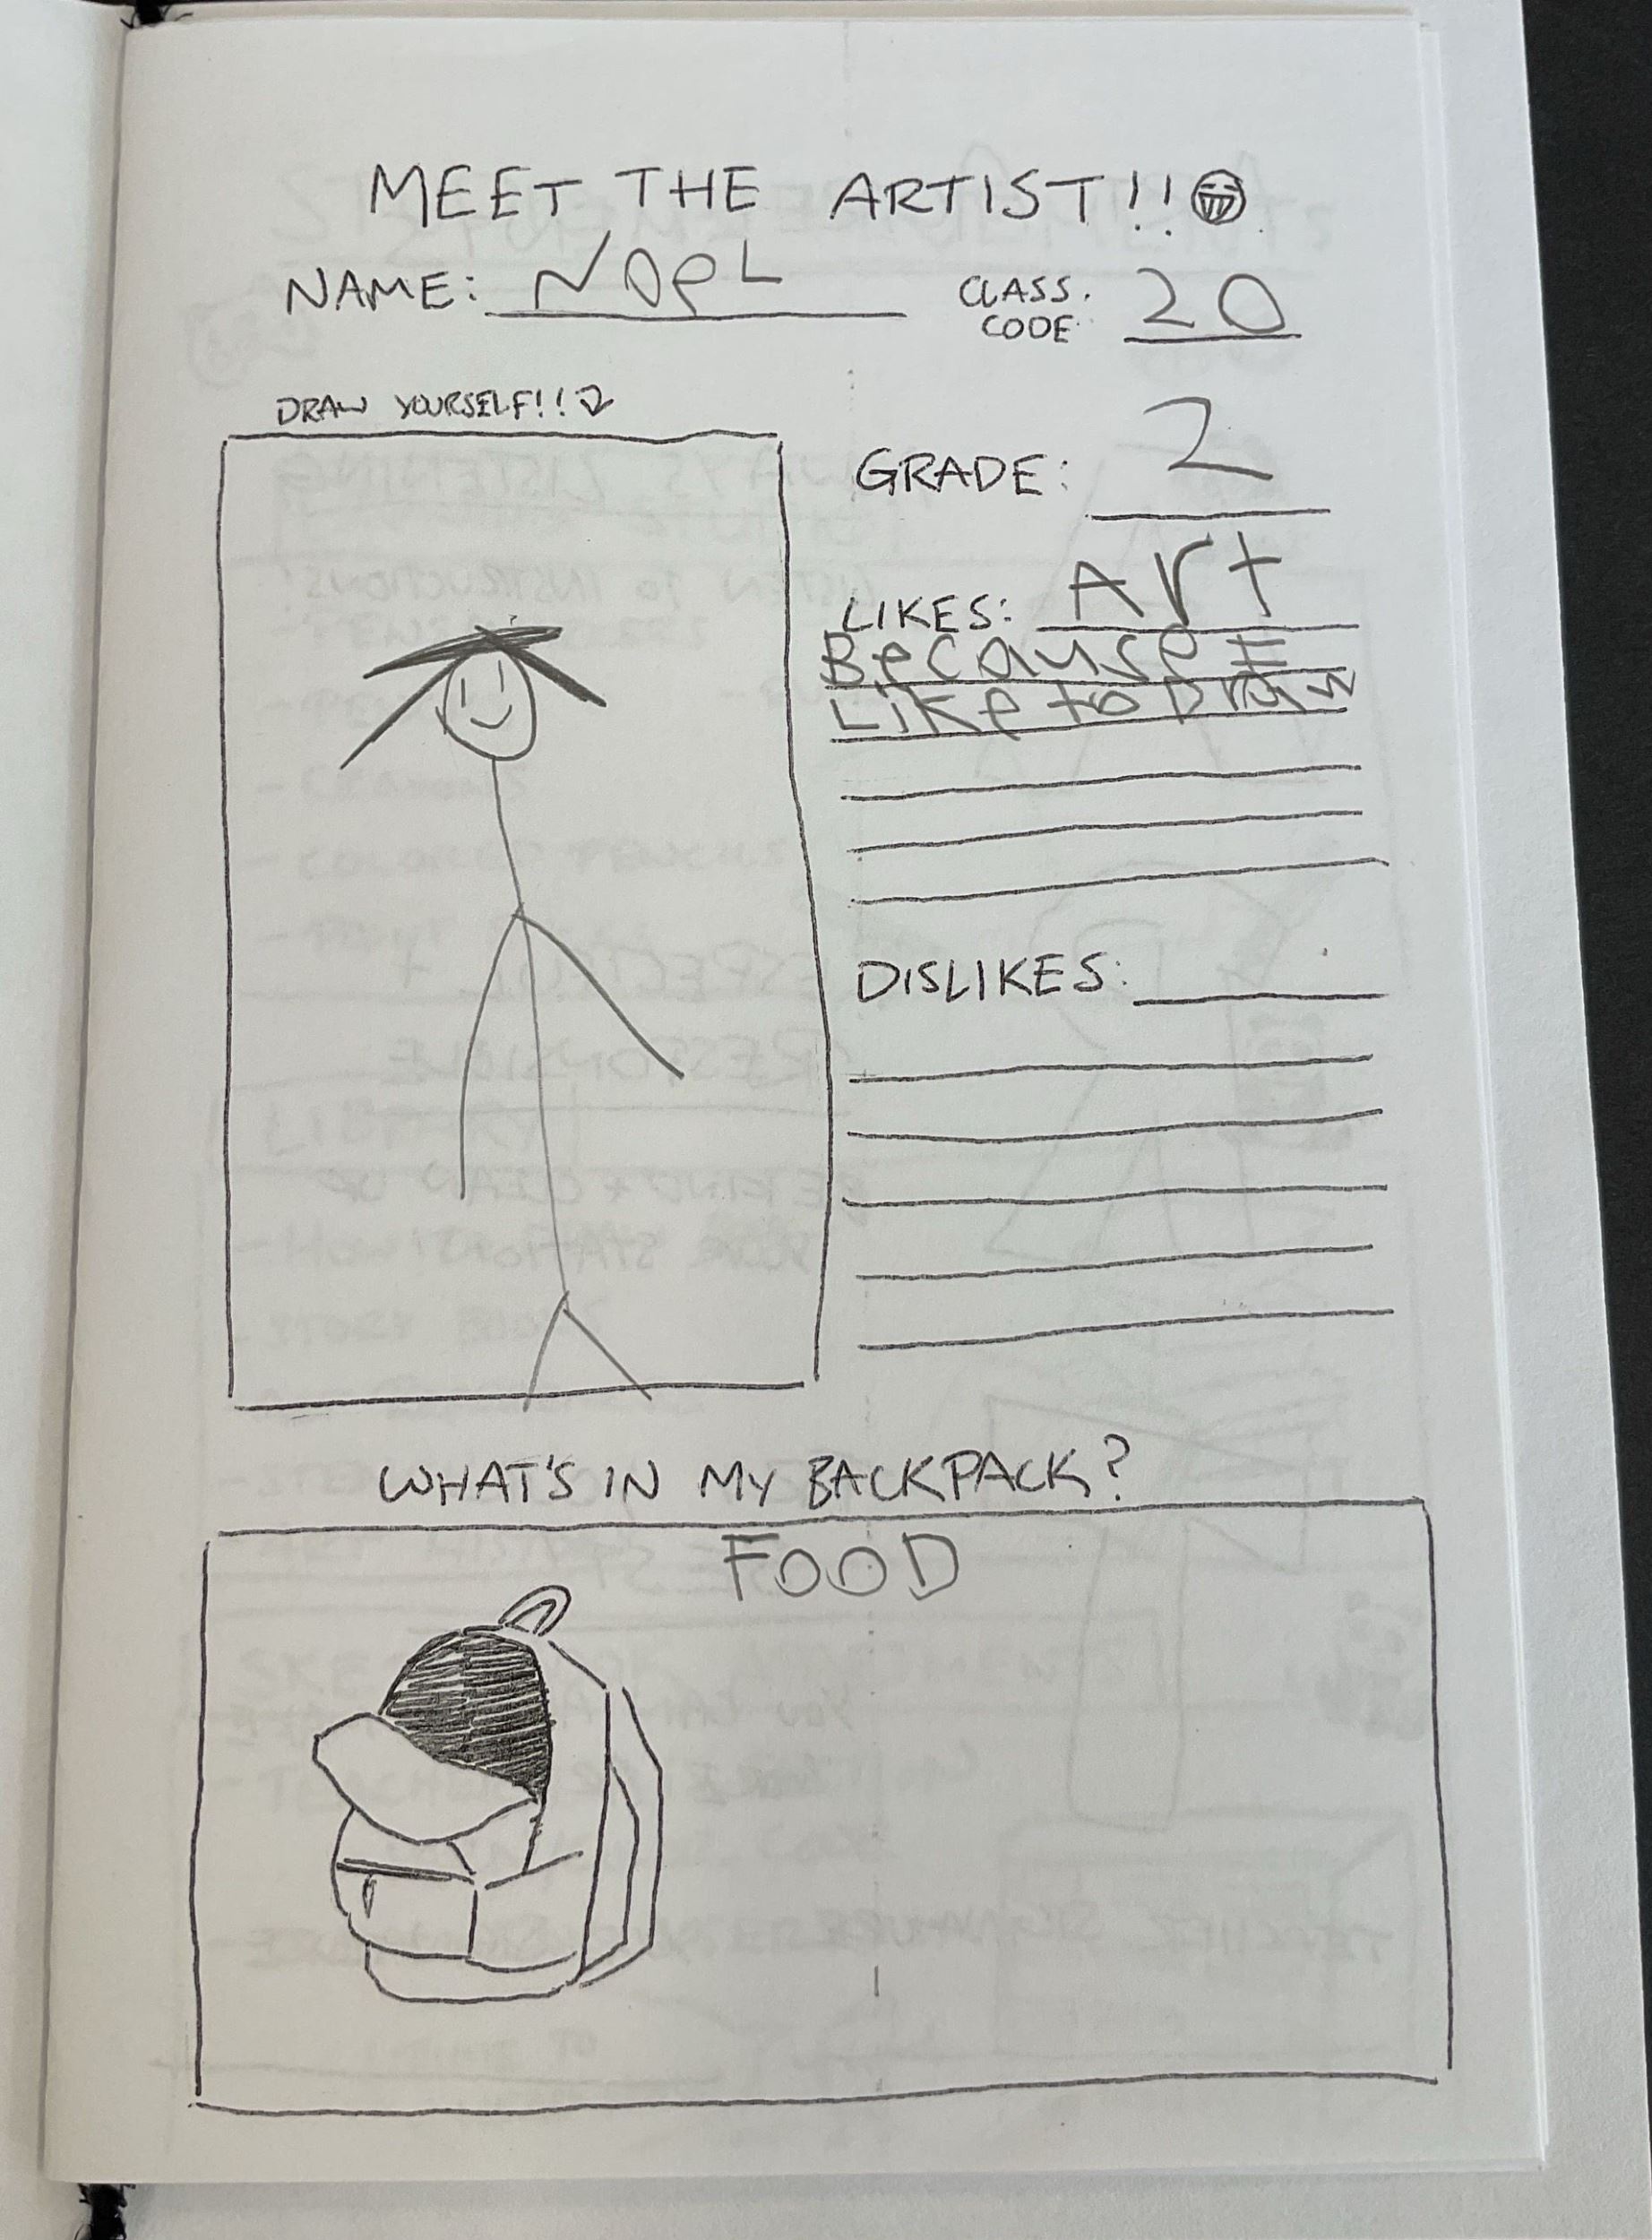 MEET THE ARTIST!!
NAME: NOeL
CLASS.
CODE 20
DRAW YOURSELF!!
GRADE: 2
LIKES: Art
Because I
Like to Draw
DISLIKES:
WHAT'S IN MY BACKPACK?
FOOD